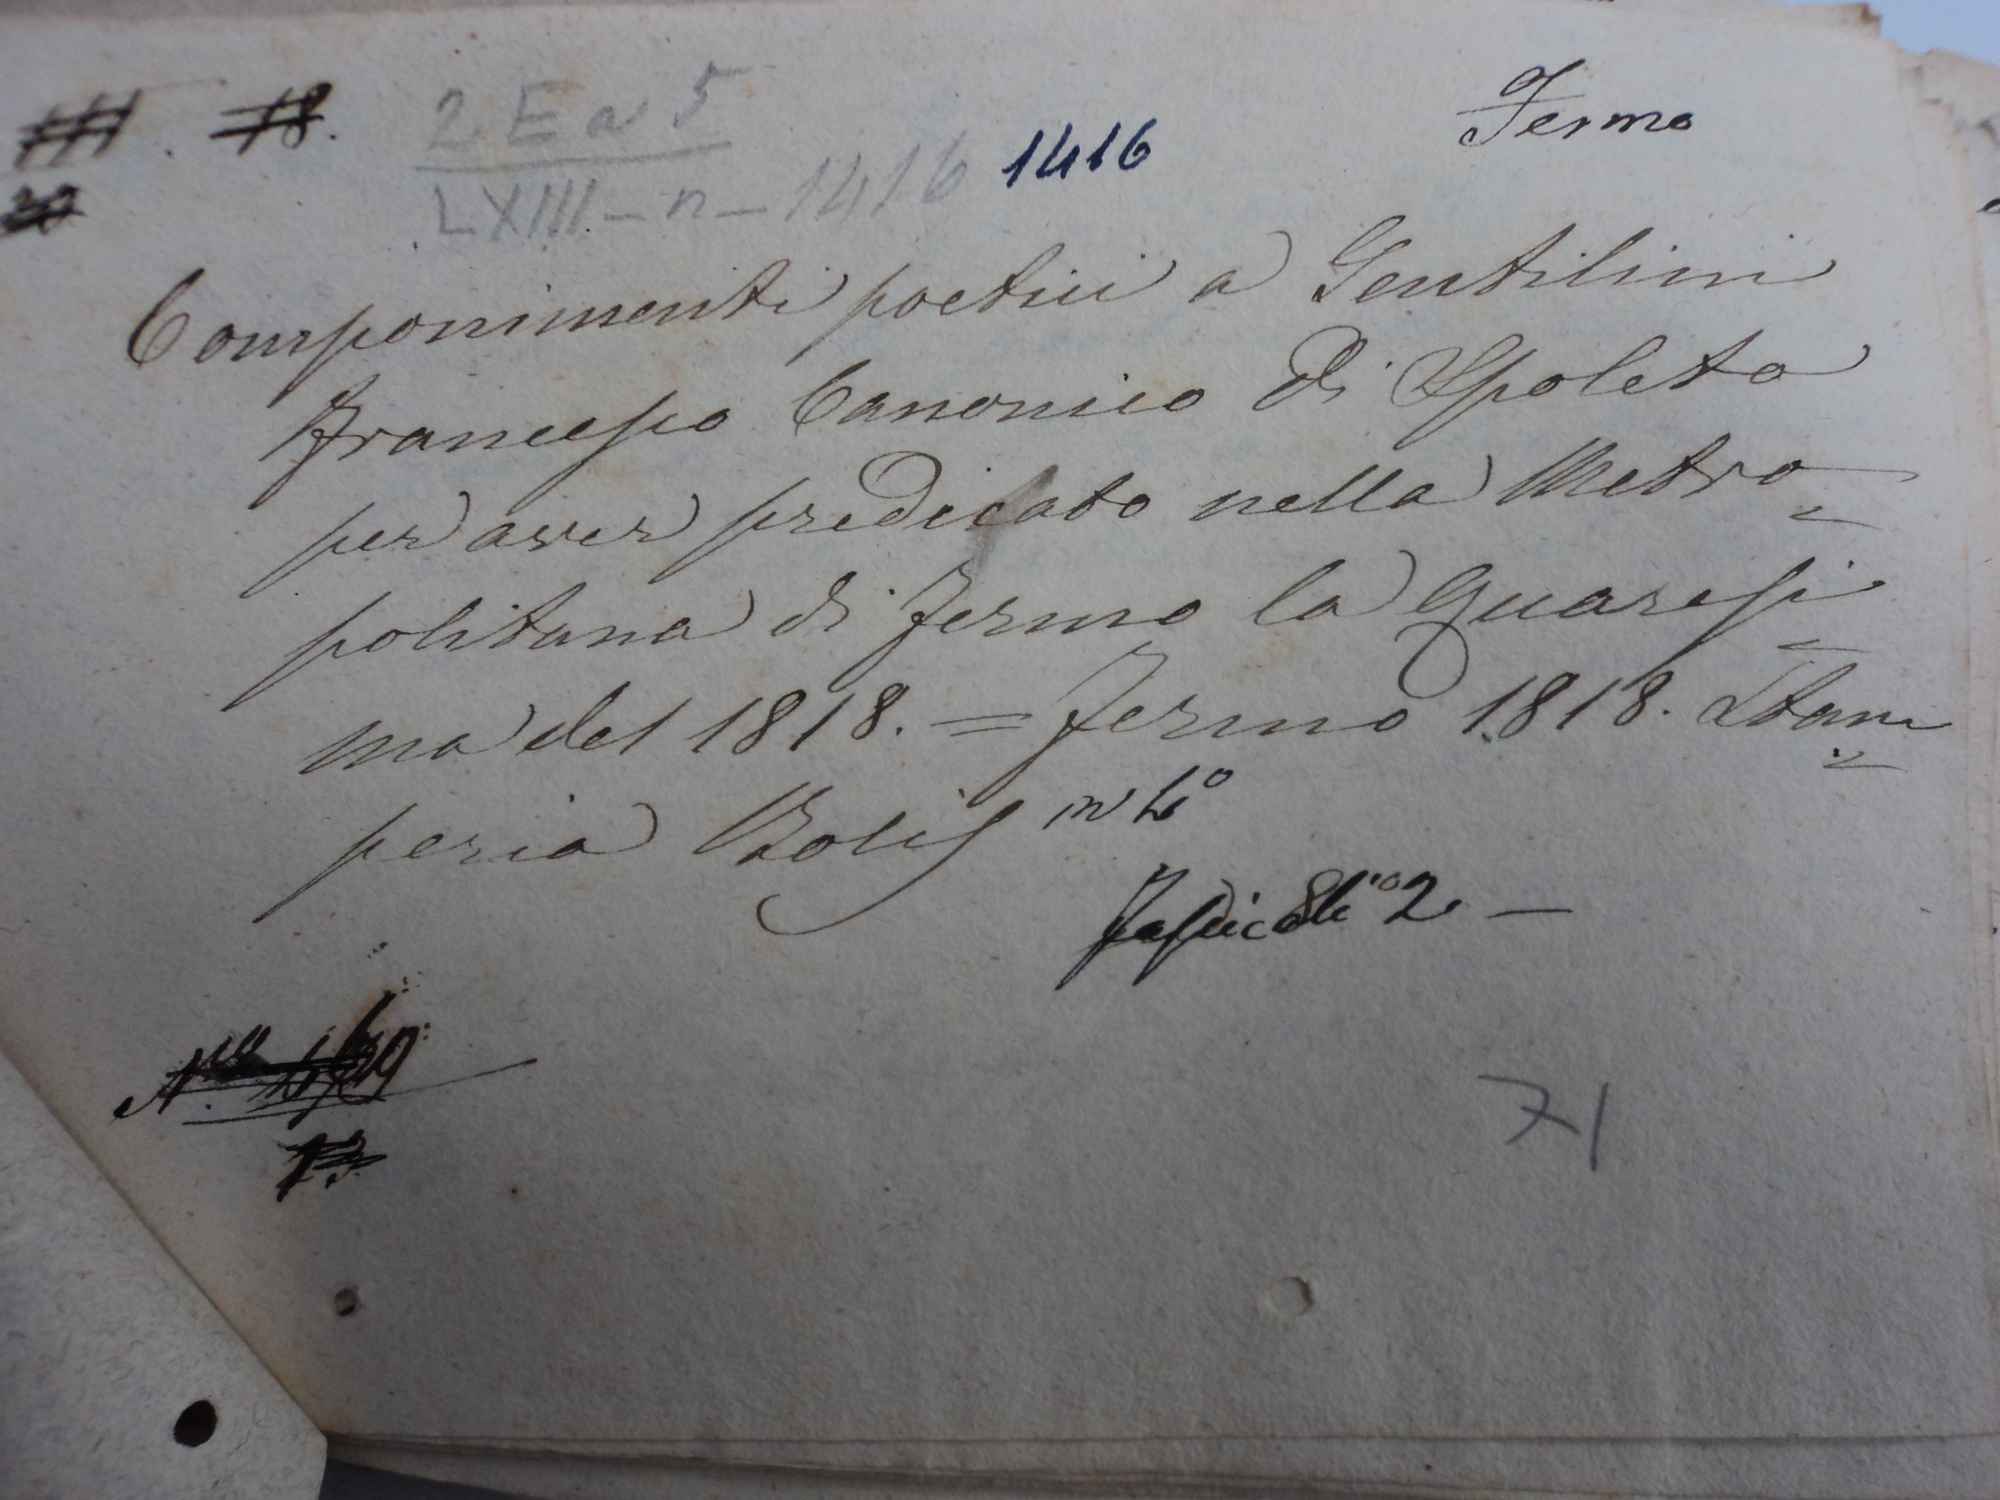 18.
2 E a 5
Fermo
LXIII - n - 1416 1416
Componimenti poetici a Gentilini
Francesco Canonico di Spoleto
per aver predicato nella Metro=
politana di Fermo la Quaresi=
ma del 1818. = Fermo 1818. Stam=
peria Bolis in 4º
Fascicoli 2 —
71